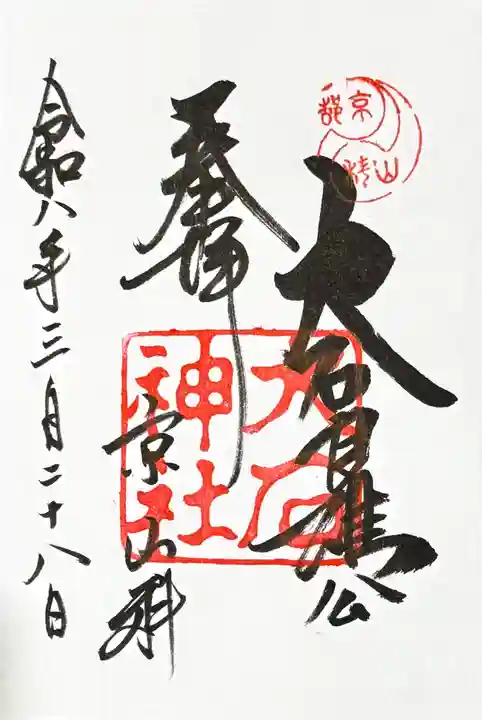 大石良雄公
奉拝
京山科
令和八年三月二十八日
大石
神社